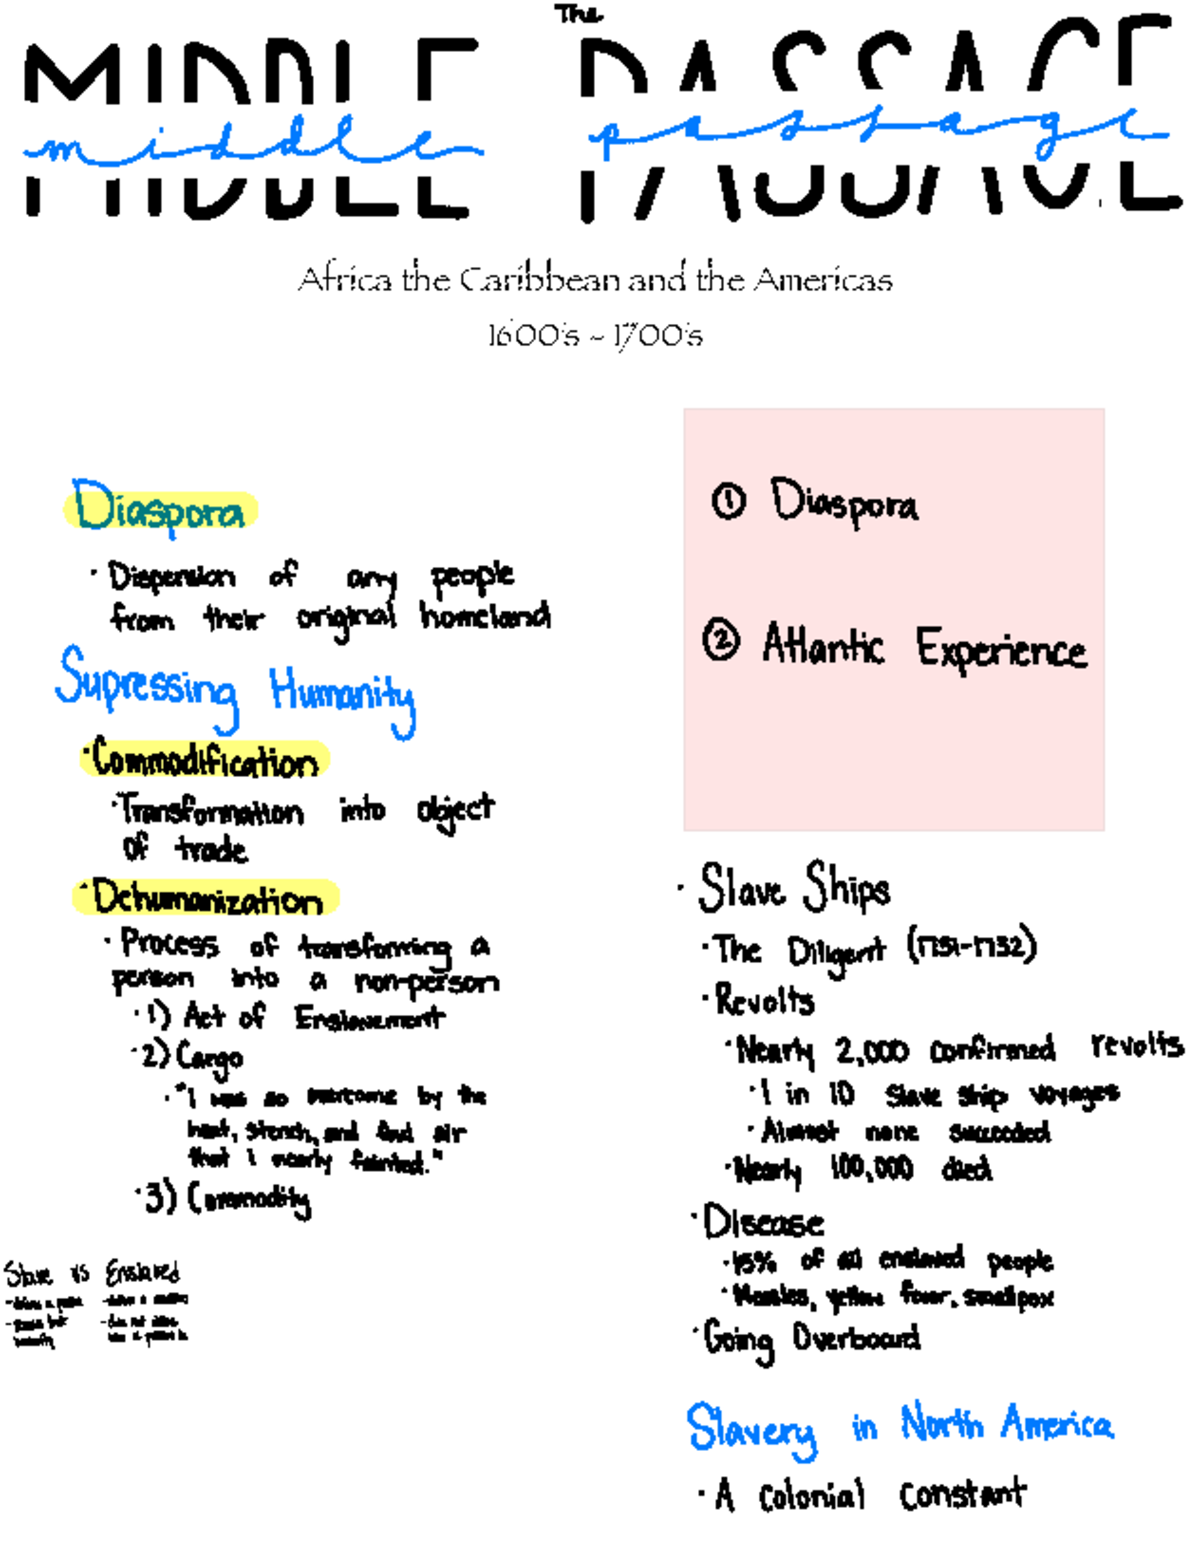 The
MIDDLE PASSAGE
middle passage
Africa the Caribbean and the Americas
1600's - 1700's
Diaspora
· Dispersion of any people
from their original homeland
Supressing Humanity
· Commodification
· Transformation into object
of trade
· Dehumanization
· Process of transforming a
person into a non-person
· 1) Act of Enslavement
· 2) Cargo
· "I was so overcome by the
heat, stench, and foul air
that I nearly fainted."
· 3) Commodity
Slave vs Enslaved
① Diaspora
② Atlantic Experience
· Slave Ships
· The Diligent (1731-1732)
· Revolts
· Nearly 2,000 confirmed revolts
· 1 in 10 slave ship voyages
· Almost none succeeded
· Nearly 100,000 died
· Disease
· 15% of all enslaved people
· Measles, yellow fever, smallpox
· Going Overboard
Slavery in North America
· A colonial constant